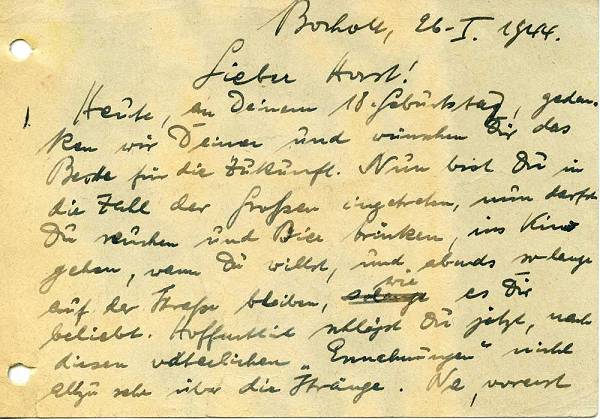 Bocholt, 26-I. 1944.
Lieber Horst!
1. Heute, an Deinem 18. Geburtstag, geden-
ken wir Deiner und wünschen Dir das
Beste für die Zukunft. Nun bist Du in
die Zahl der Großen eingetreten, nun darfst
Du rauchen und Bier trinken, ins Kino
gehen, wann Du willst, und abends so lange
auf der Straße bleiben, wie es Dir
beliebt. Hoffentlich schlägst Du jetzt, nach
diesen väterlichen „Ermahnungen" nicht
allzu sehr über die Stränge. Na, vorerst